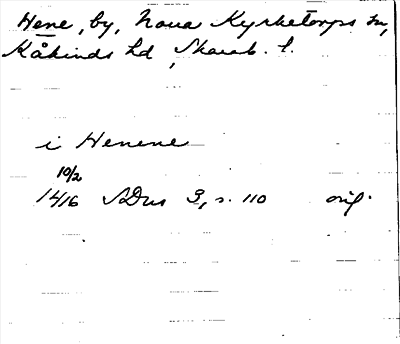 Hene, by, Norra Kyrketorps sn,
Kåkinds hd, Skarab. l.
i Henene
10/2
1416 SDns 3, s. 110 orig.